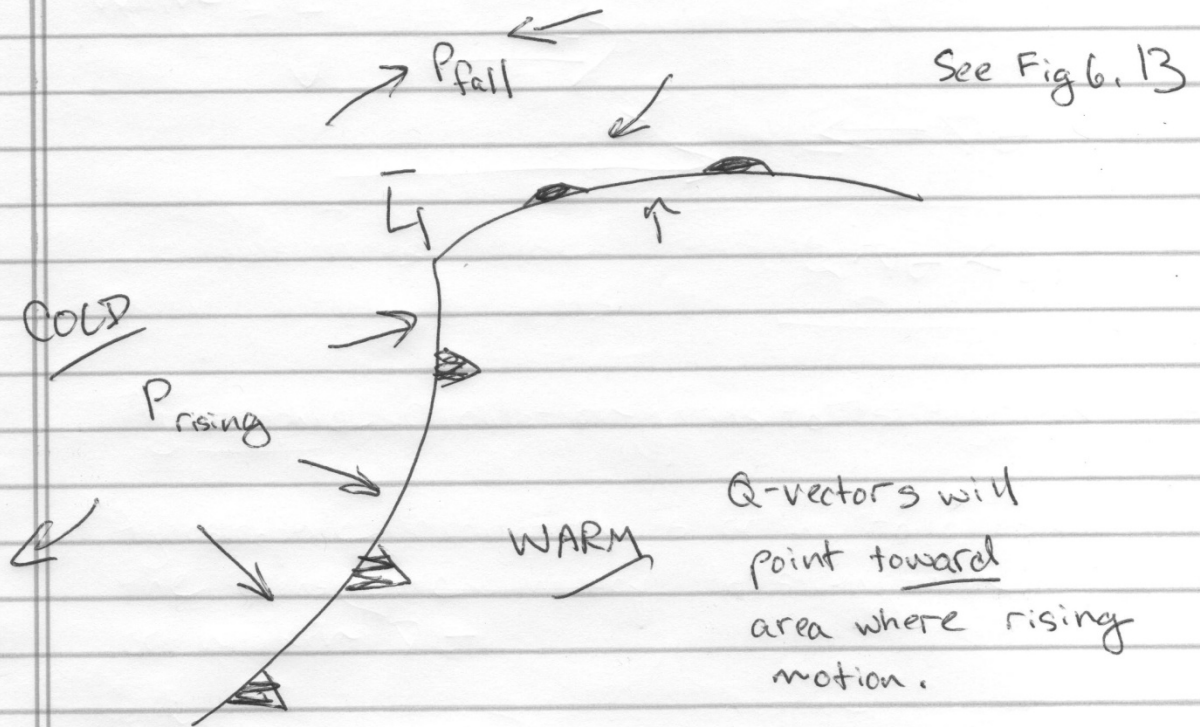 P fall
See Fig 6.13
L
COLD
P rising
WARM
Q-vectors will
point toward
area where rising
motion.